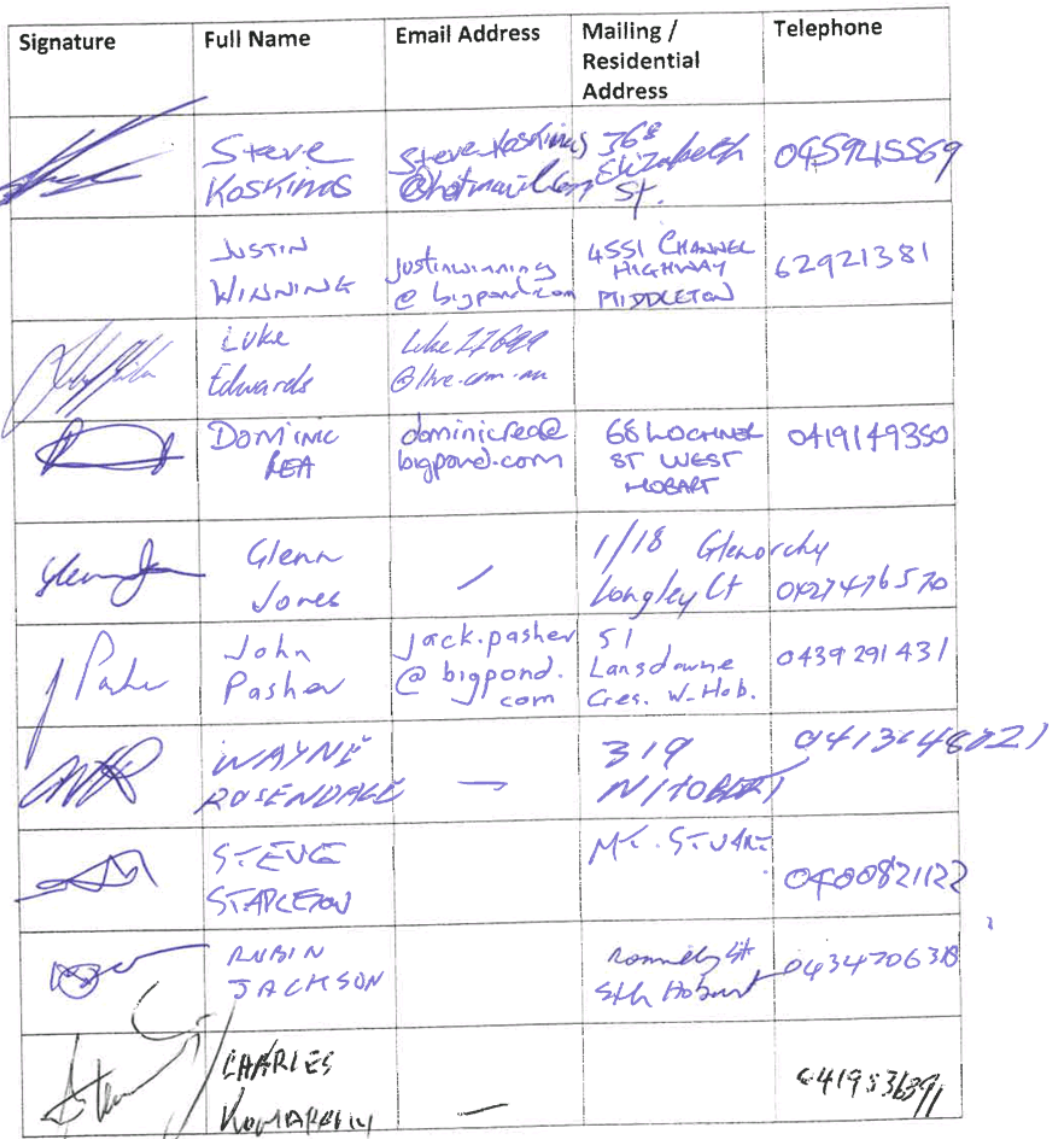 Signature Full Name Email Address Mailing / Residential Address Telephone
Steve Koskinas 368 Elizabeth St.
@hotmail.com
JUSTIN WINNING justinwinning @ bigpond.com 4551 CHANNEL HIGHWAY MIDDLETON 62921381
Luke Edwards
@live.com.au
DOMINIC REA dominicrea@ bigpond.com 68 ST WEST HOBART 0419149350
Glenn Jones / 1/18 Glenorchy Longley Ct
John Pasher jack.pasher @ bigpond. com 51 Lansdowne Cres. W-Hob. 0439 291 431
WAYNE ROSENDALE — 319
STEVE STAPLETON MT. STUART 0400821122
RUBIN JACKSON St Sth Hobart 0434706318
CHARLES —